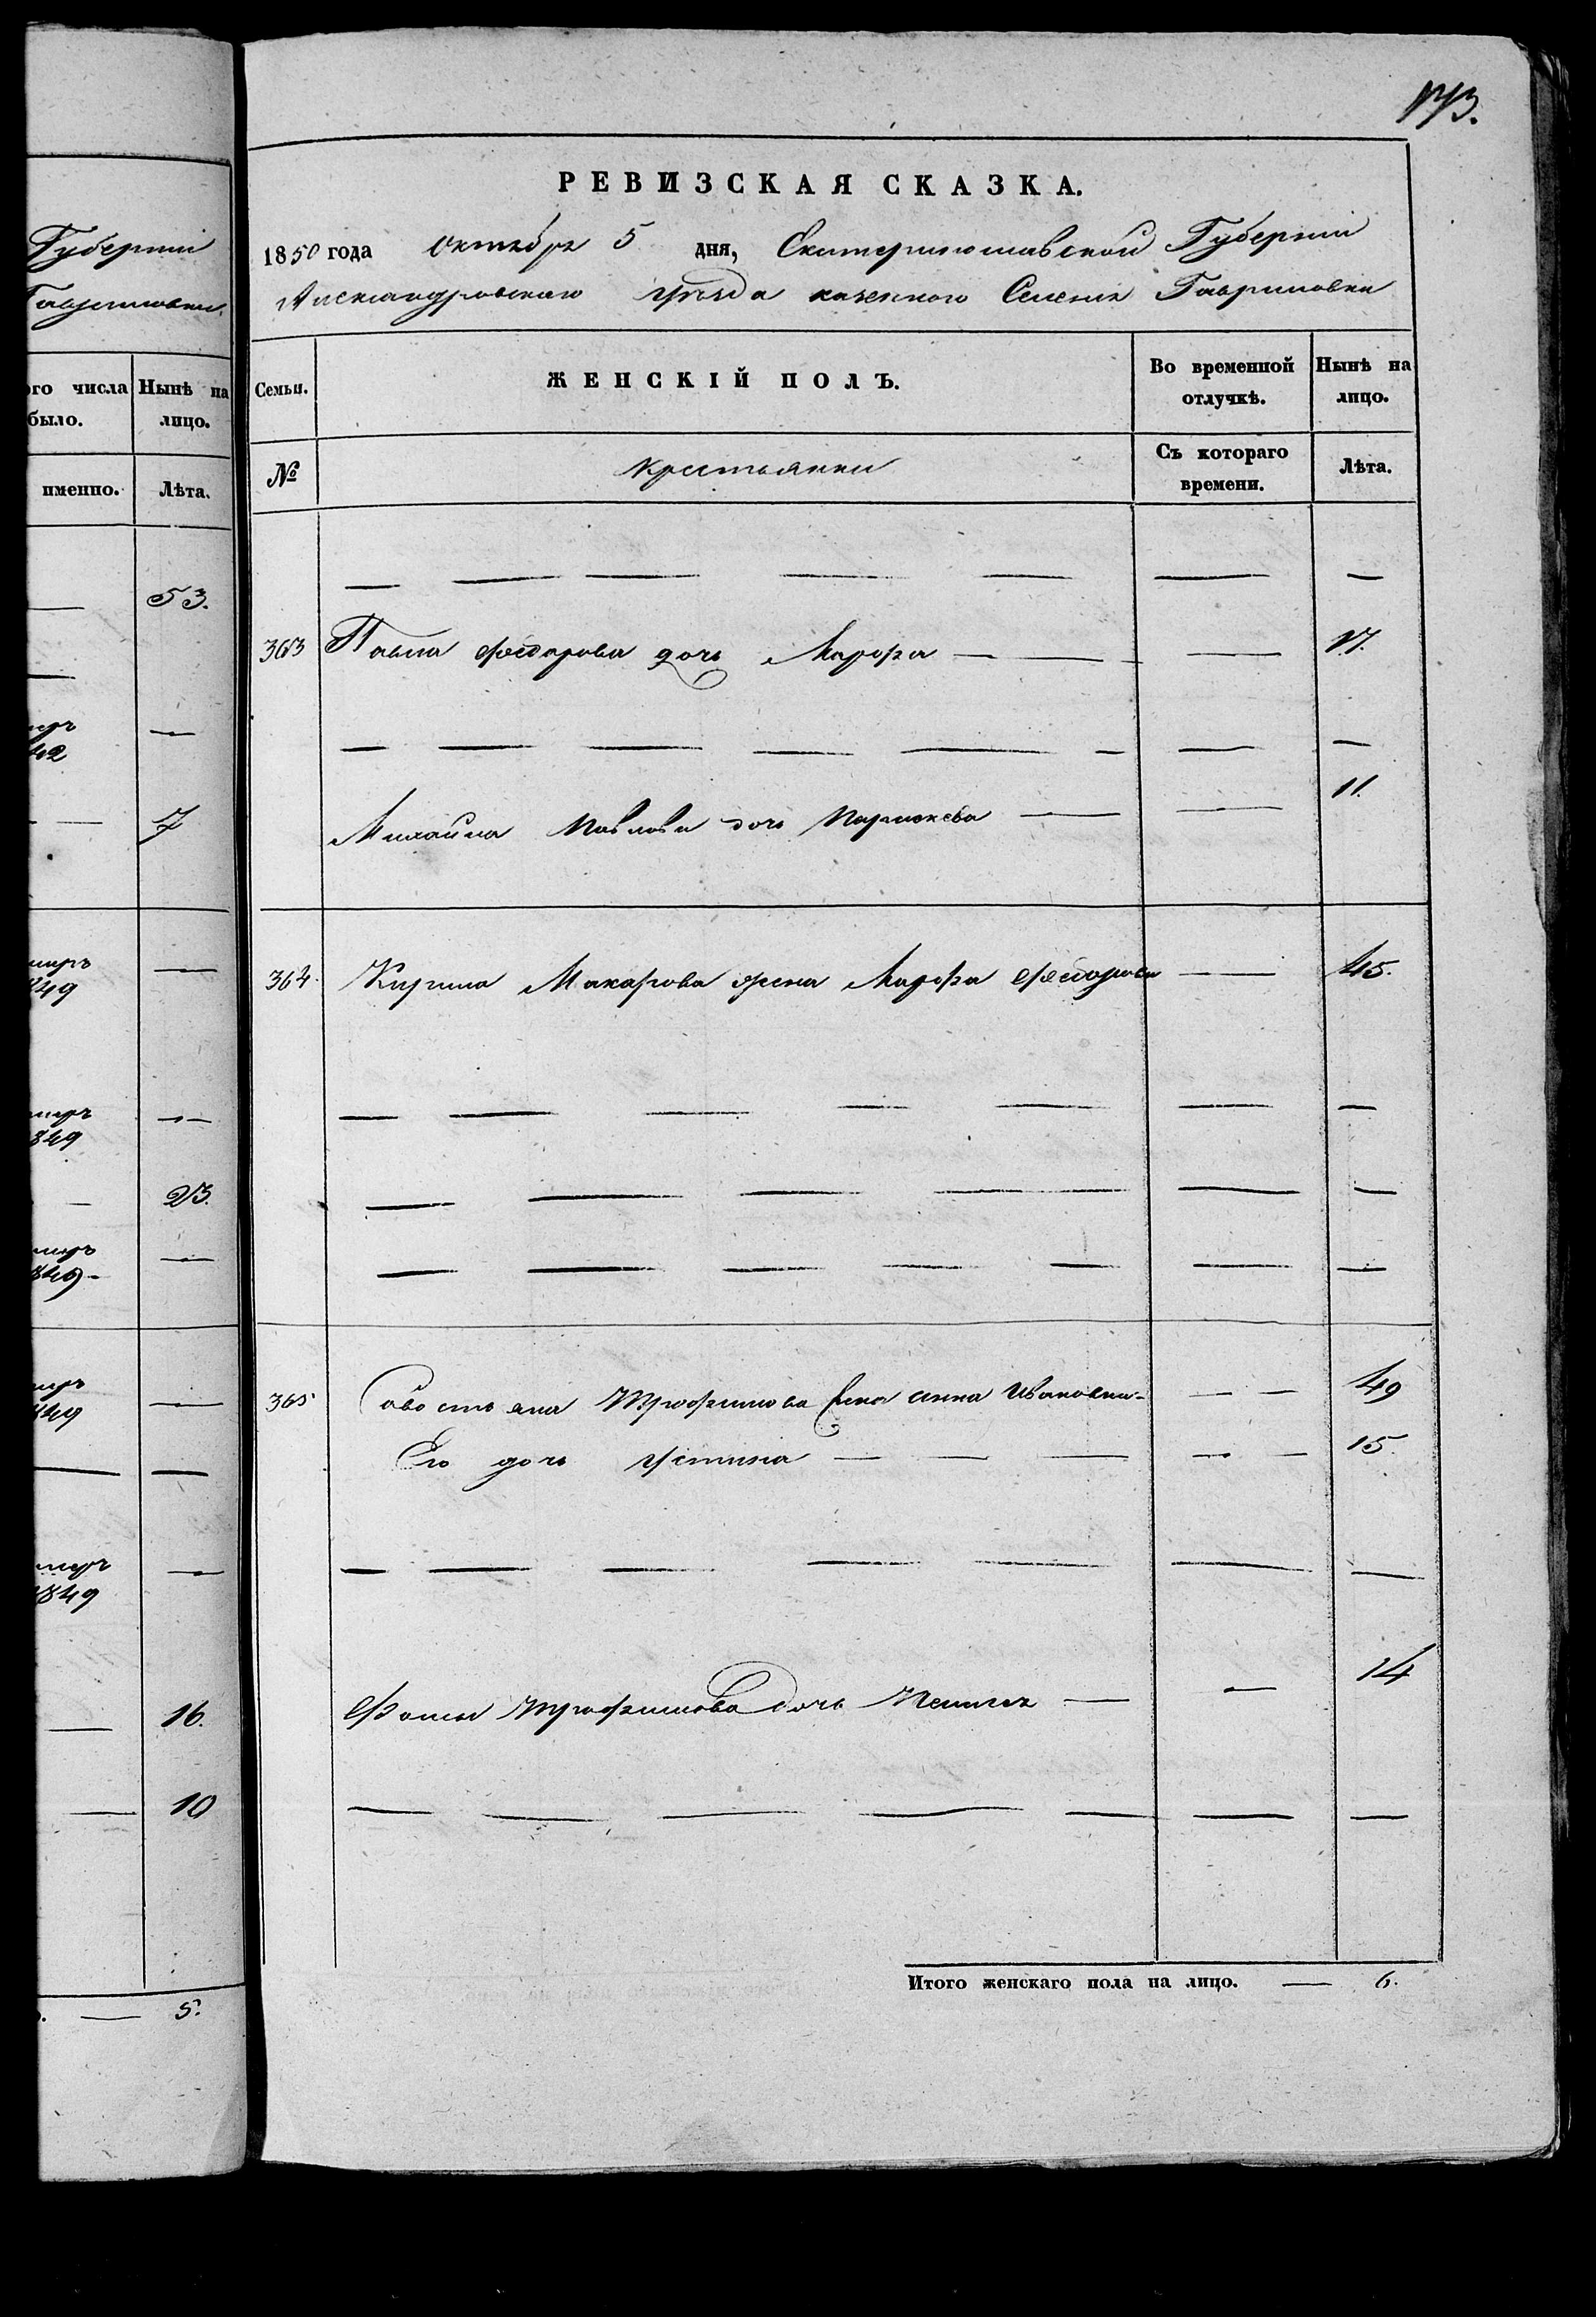 Губерніи
Гавриловки
ого числа Нынѣ на
было. лицо.
именно. Лѣта.
53.
меръ
42
7
меръ
849
меръ
849
23.
меръ
849
меръ
849
меръ
1849
16.
10
5.
173.
РЕВИЗСКАЯ СКАЗКА.
1850 года Октября 5 дня, Екатеринославской Губерніи
Александровскаго уѣзда казеннаго Селенія Гавриловки
Семьи. ЖЕНСКІЙ ПОЛЪ. Во временной отлучкѣ. Нынѣ на лицо.
№ Крестьянки Съ котораго времени. Лѣта.
— — — — — — —
363 Павла Федорова дочь Марфа — — — 17.
— — — — — — — —
Михайла Павлова дочь Парасковья — — 11.
364. Кирила Макарова жена Марфа Федорова — 45.
— — — — — — —
— — — — — —
— — — — — — —
365 Савостьяна Трофимова жена Анна Ивановна — — 49
Его дочь Устина — — — — — 15.
— — — — — — —
Фомы Трофимова дочь — — 14
— — — — — — —
Итого женскаго пола на лицо. — 6.